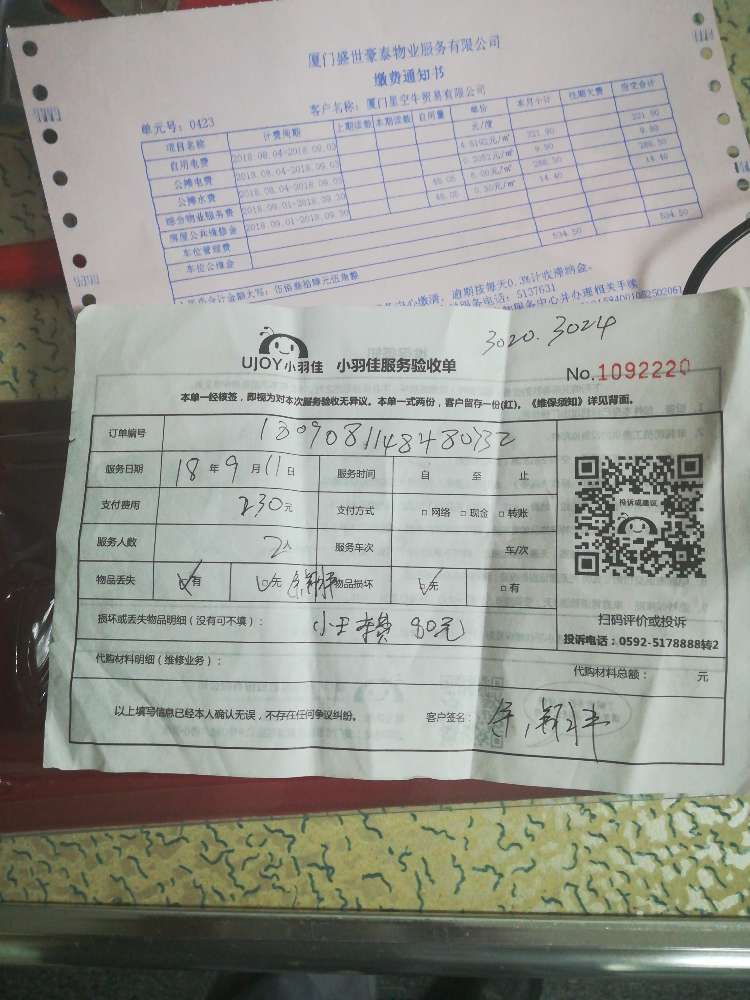 厦门盛世豪泰物业服务有限公司
缴费通知书
单元号: 0423
客户名称: 厦门星空牛贸易有限公司
项目名称 计费周期 上期读数 本期读数 自用量 单价 元/度 本月小计 往期欠费 应交合计
自用电费 2018.08.04-2018.09.03 321.90
公摊电费 2018.08.04-2018.09.03 9.90
公摊水费
综合物业服务费 2018.09.01-2018.09.30 48.05 6.00元/㎡ 288.30
房屋公共维修金 2018.09.01-2018.09.30 48.05 0.30元/㎡ 14.40 14.40
车位管理费
车位公维金 534.50 534.50
伍佰叁拾肆元伍角整
逾期按每天0.3%计收滞纳金。
服务电话: 5137631
服务中心并办理相关手续
3020.3024
UJOY小羽佳 小羽佳服务验收单
No.1092220
本单一经核签，即视为对本次服务验收无异议。本单一式两份，客户留存一份(红)。《维保须知》详见背面。
订单编号
服务日期 18年9月11日 服务时间 自 至 止
支付费用 230元 支付方式 □网络 □现金 □转账
服务人数 2人 服务车次 车/次
物品丢失 □有 □无 物品损坏 □无 □有
投诉或建议
损坏或丢失物品明细（没有可不填）：
80元
扫码评价或投诉
投诉电话：0592-5178888转2
代购材料明细（维修业务）：
代购材料总额： 元
以上填写信息已经本人确认无误，不存在任何争议纠纷。 客户签名：